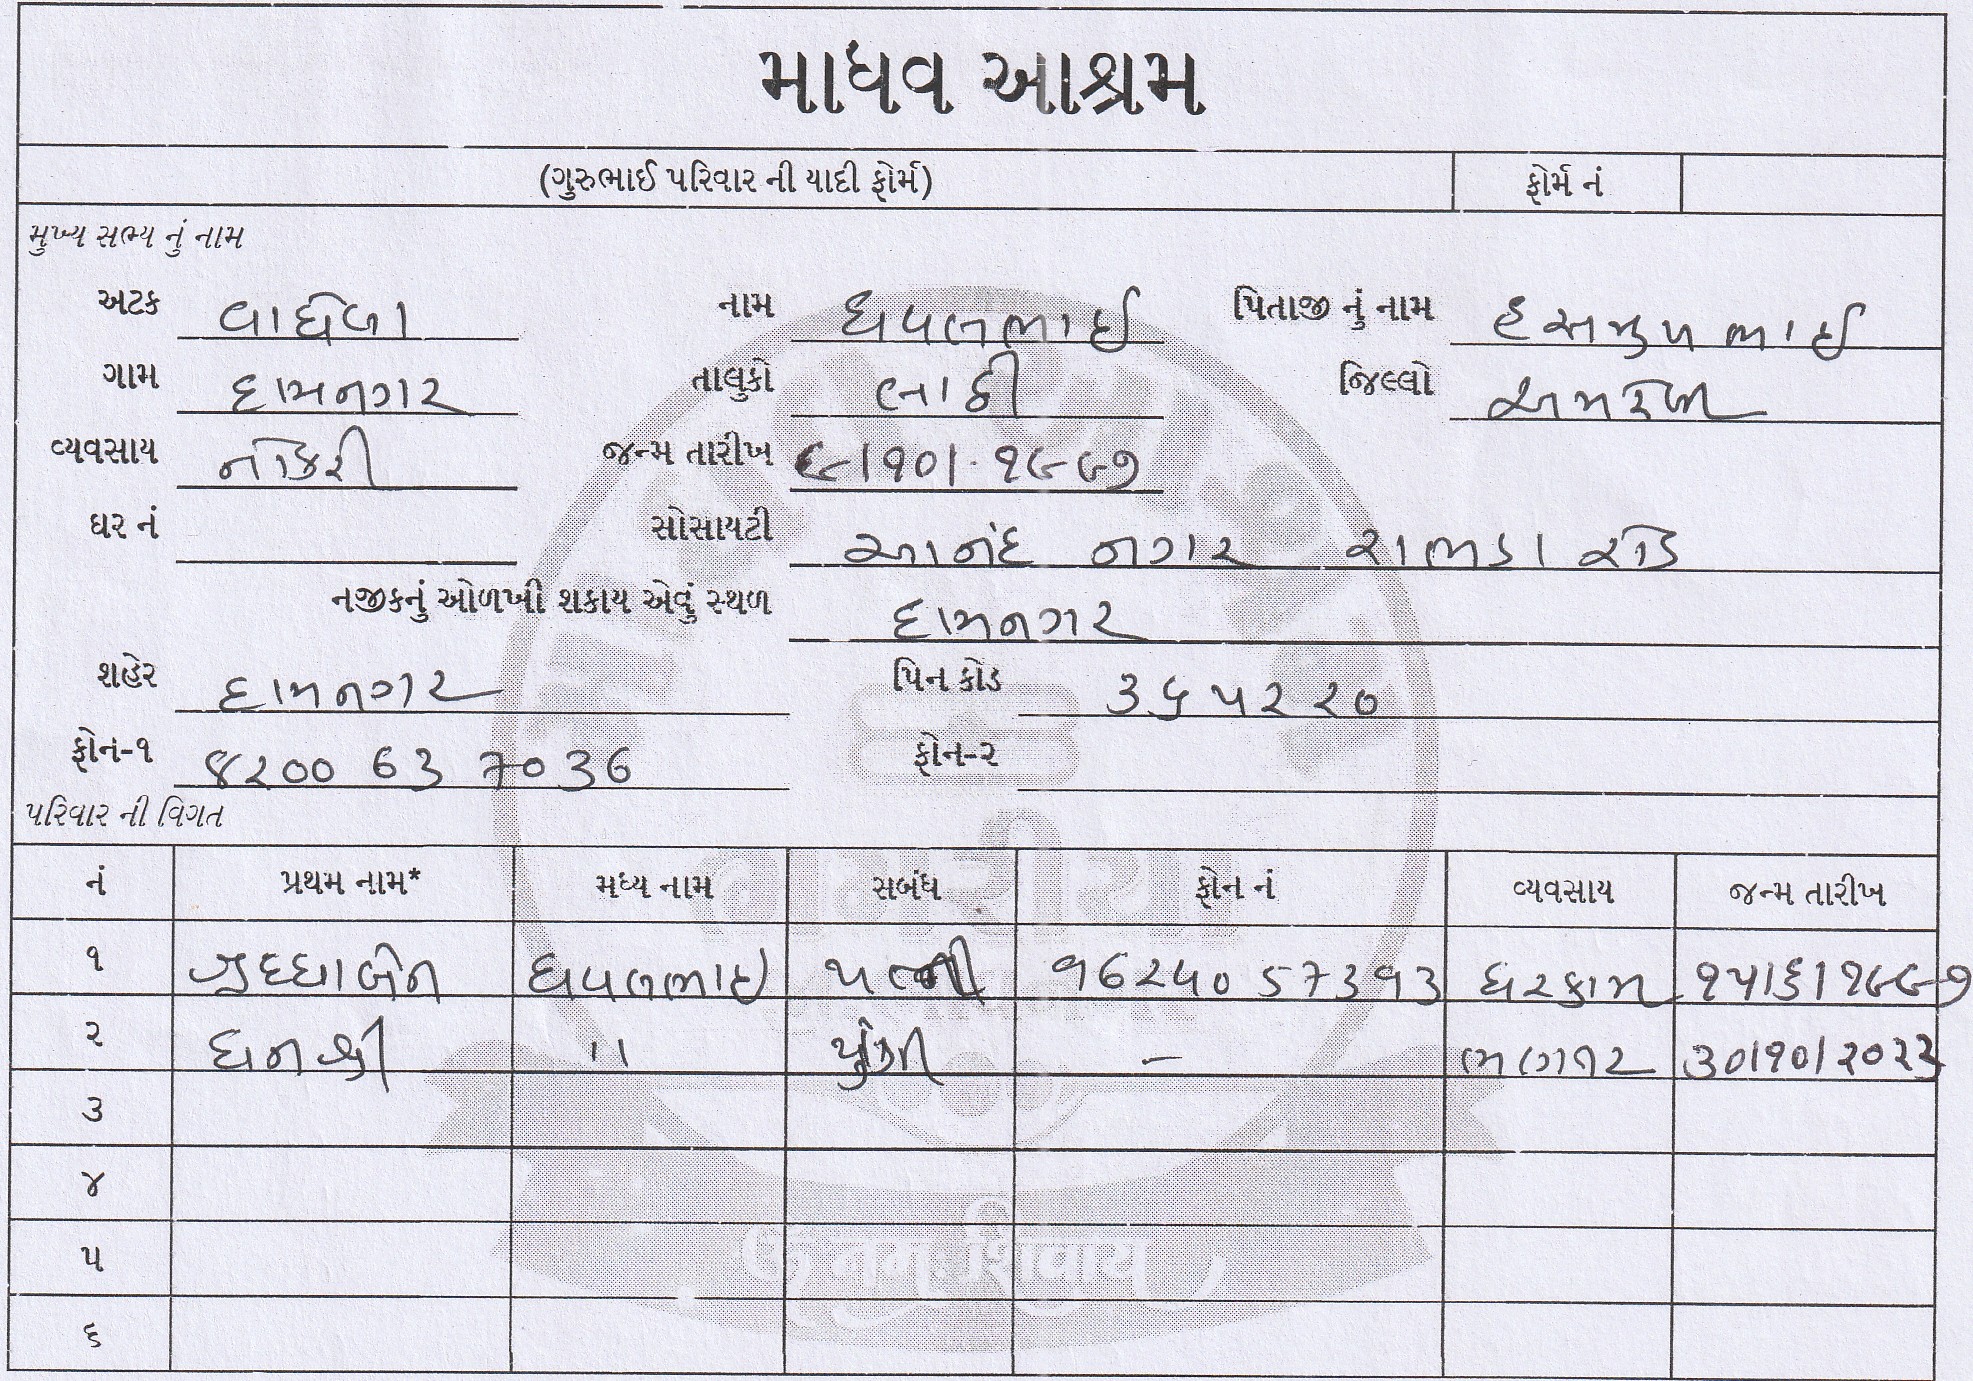 માધવ આશ્રમ
(ગુરુભાઈ પરિવાર ની યાદી ફોર્મ) ફોર્મ નં
મુખ્ય સભ્ય નું નામ
અટક વાઘેળા નામ ધવલભાઈ પિતાજી નું નામ હસમુખભાઈ
ગામ દામનગર તાલુકો લાઠી જિલ્લો અમરેલી
વ્યવસાય નોકરી જન્મ તારીખ ૬/૧૦/૧૯૯૭
ઘર નં સોસાયટી આનંદ નગર રાભડા રોડ
નજીકનું ઓળખી શકાય એવું સ્થળ દામનગર
શહેર દામનગર પિન કોડ ૩૬૫૨૨૦
ફોન-૧ ૪૨૦૦ 63 7036 ફોન-૨
પરિવાર ની વિગત
નં પ્રથમ નામ* મધ્ય નામ સબંધ ફોન નં વ્યવસાય જન્મ તારીખ
૧ શ્રદ્ધાબેન ધવલભાઇ પત્ની ૧6૨૫૦ 57393 ઘરકામ ૧૫/૬/૧૯૯૭
૨ ધનશ્રી '' પુત્રી - ભણતર ૩૦/૧૦/૨૦૨૨
૩
૪
૫
૬
નમઃ શિવાય